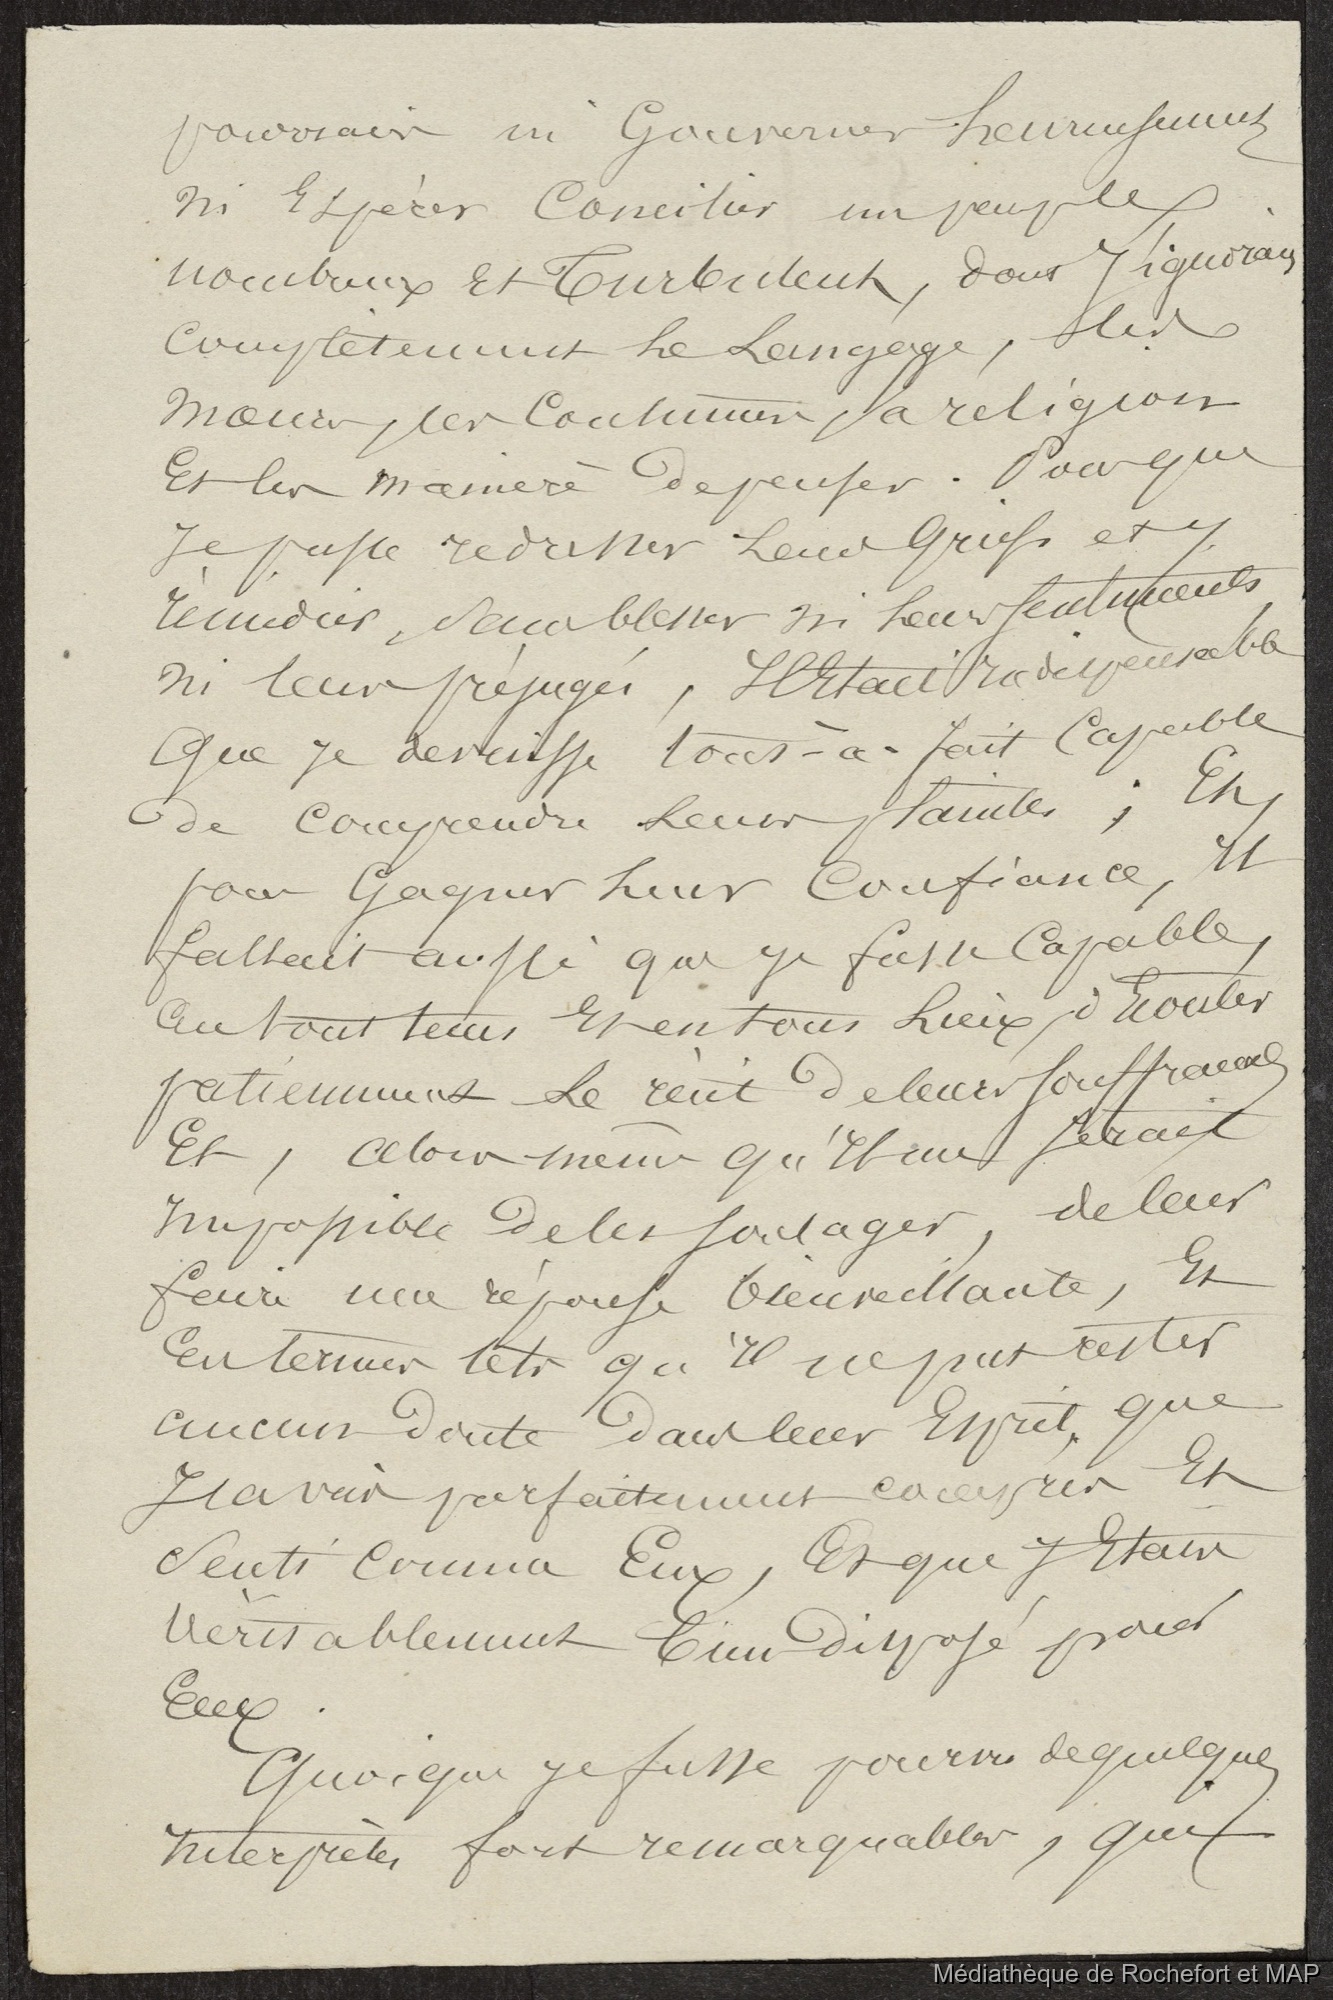 pouvais ni Gouverner heureusement
ni Espérer Concilier un peuple
nombreux Et Turbulent, dont J'ignorais
complètement le Langage, les
mœurs, les Coutumes, la religion
Et les manière de penser. Pour que
Je pusse redresser leurs Griefs et y
rémédier, sans blesser ni leurs sentiments
ni leurs préjugés, Il Etait Indispensable
Que je devinsse tout-à-fait Capable
de comprendre leurs plaintes ; Et,
pour Gagner leur Confiance, Il
fallait aussi que je fusse Capable,
En tout tems Et en tous Lieux, d'Ecouter
patiemment Le récit de leurs souffrances
Et, alors même qu'Il me serait
Impossible de les soulager, de leur
faire une réponse bienveillante, Et
En termes tels qu'Il ne put rester
aucun Doute dans leur Esprit, que
J'avais parfaitement compris Et
Senti Comme Eux, Et que J'Etais
Véritablement bien Disposé pour
Eux.
Quoique je fusse pourvu de quelques
Interprètes fort remarquables, qui
Médiathèque de Rochefort et MAP